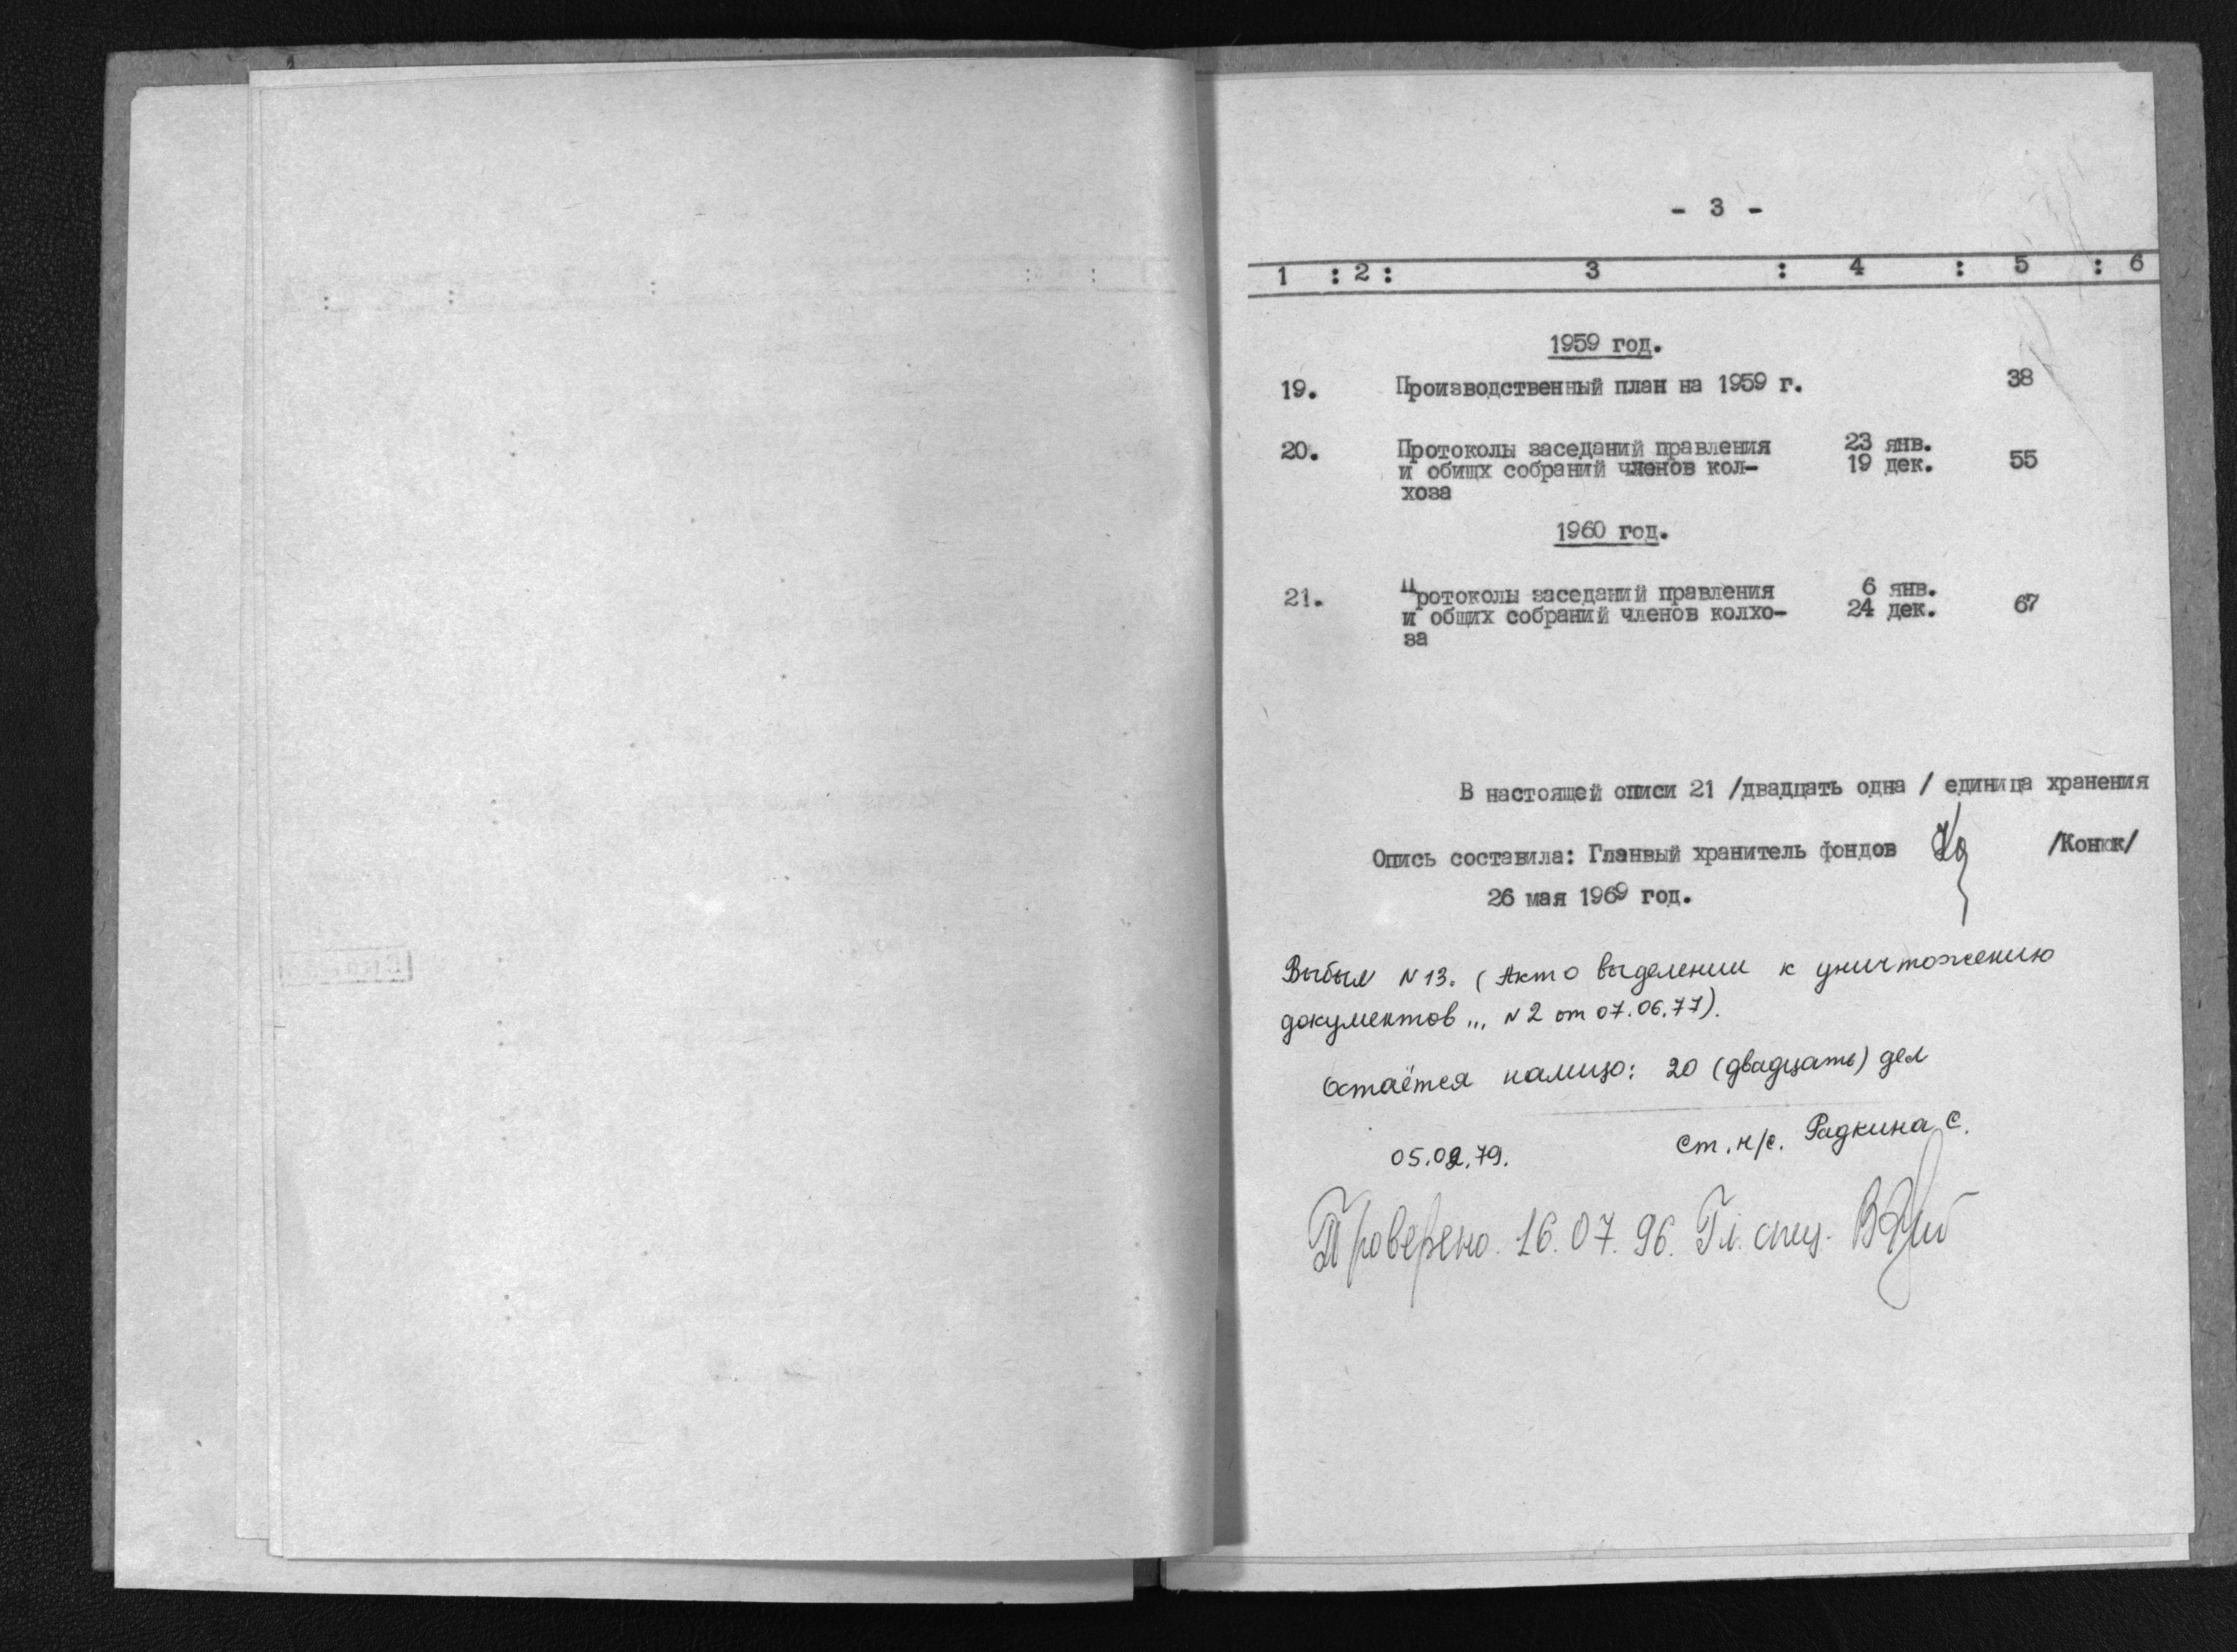 - 3 -
1 : 2 : 3 : 4 : 5 : 6
1959 год.
19. Производственный план на 1959 г. 38
20. Протоколы заседаний правления 23 янв.
и обищх собраний членов кол- 19 дек. 55
хоза
1960 год.
21. Протоколы заседаний правления 6 янв.
и общих собраний членов колхо- 24 дек. 67
за
В настоящей описи 21 /двадцать одна / единица хранения
Опись составила: Гланвый хранитель фондов /Конюк/
26 мая 1969 год.
Выбыл N 13. (Акт о выделении к уничтожению
документов ... N 2 от 07.06.77).
Остаётся налицо: 20 (двадцать) дел
05.02.79. Ст. н/с. Радкина С.
Проверено. 16.07.96. Гл. спец.